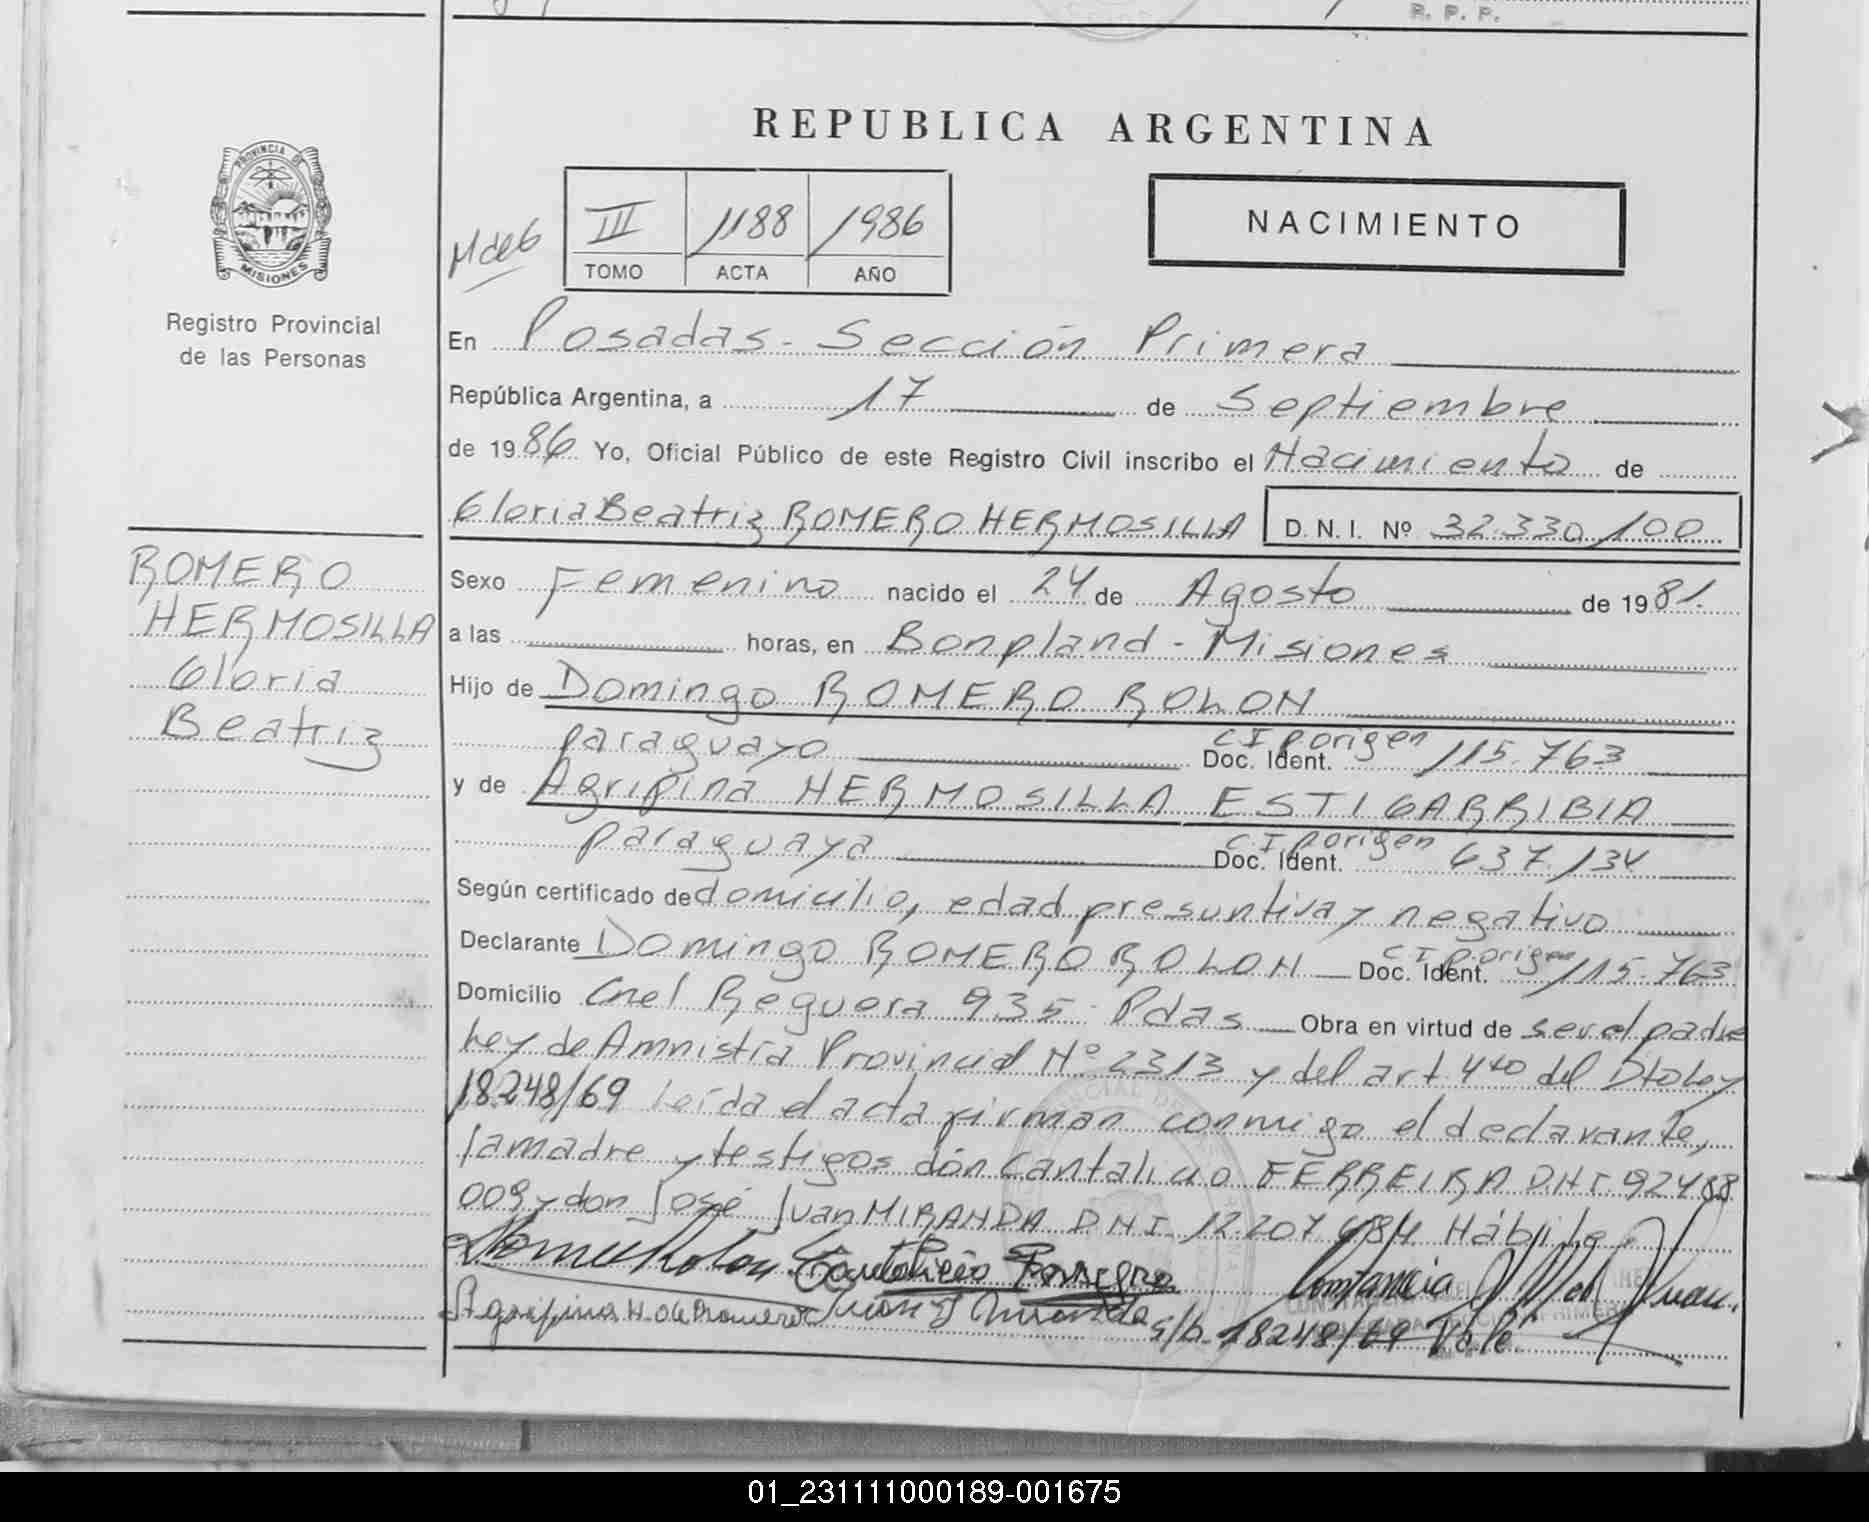 R. P. P.
REPUBLICA ARGENTINA
PROVINCIA DE
MISIONES
Registro Provincial
de las Personas
III 1188 1986
TOMO ACTA AÑO
NACIMIENTO
En Posadas - Sección Primera
República Argentina, a 17 de Septiembre
de 1986 Yo, Oficial Público de este Registro Civil inscribo el Nacimiento de
Gloria Beatriz ROMERO HERMOSILLA D. N. I. Nº 32.330.100
ROMERO
HERMOSILLA
Gloria
Beatriz
Sexo Femenino nacido el 24 de Agosto de 1981.
a las horas, en Bonpland - Misiones
Hijo de Domingo ROMERO ROLON
paraguayo Doc. Ident. C I p.origen 115.763
y de Agripina HERMOSILLA ESTIGARRIBIA
paraguaya Doc. Ident. C.I p.origen 637.134
Según certificado de domicilio, edad presuntiva y negativo
Declarante Domingo ROMERO ROLON Doc. Ident. C I p.origen 115.763
Domicilio Cnel Reguera 935 - Pdas Obra en virtud de ser el padre
Ley de Amnistía Provincial Nº 2313 y del art 4to del Dto Ley
18248/69 leída el acta firman conmigo el declarante,
la madre y testigos don Cantalicio FERREIRA D.N.I. 92488
009 y don José Juan MIRANDA D.N.I. 12.207.684 Hábiles
Cantalicio Ferreira Constancia
Agripina H. de Romero Juan J Miranda s/b. 18248/69 Vale
01_231111000189-001675